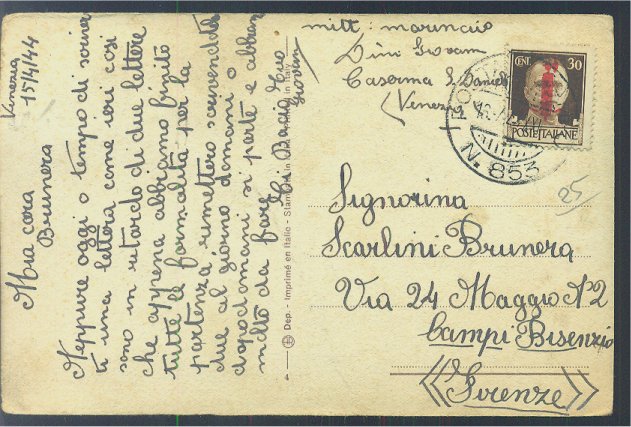 Venezia
15/4/44
Mia cara
Brunera
Neppure oggi o tempo di scriver
ti una lettera come ieri cosi
sono in ritardo di due lettere
che appena abbiamo finito
tutte le formalità per la
partenza rimettero scrivendoti
due al giorno domani o
dopodomani si parte e abbiamo
molto da fare
Baci tuo
Giovanni
mitt: marinaio
Dini Giovanni
Caserma S Daniele
(Venezia)
CENT. 30
POSTE ITALIANE
N. 853
25
Signorina
Scarlini Brunera
Via 24 Maggio N2
Campi Bisenzio
((Firenze))
4 Dep. - Imprimé en Italie - Stampato in Italia - Printed in Italy